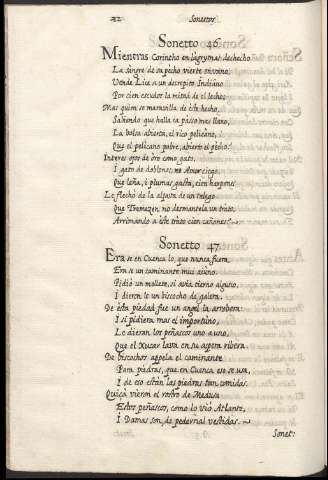 22 Sonettos
Sonetto 46.
Mientras Corintho en lagrymas deshecho
La sangre de su pecho vierte en vano,
Vende Lice a un decrepito Indiano
Por cien escudos la mitad de el lecho.
Mas quien se maravilla de este hecho,
Sabiendo que halla ia passo mas llano,
La bolsa abierta, el rico pelicano,
Que el pelicano pobre, abierto el pecho?
Interes ojos de oro como gato,
I gato de doblones, no Amor ciego,
Que leña, i plumas gasta, cien harpones
Le flechò de la aljava de un talego
Que Tremezen, no desmantela un trato,
Arrimando a este trato cien cañones?
Sonetto 47.
Era se en Cuenca lo, que nunca fuera
Era se un caminante mui aiuno.
Pidiò un mollete, si avia tierno alguno,
I dieron le un biscocho de galera.
De esta piedad fue un angel la arrobera
I si pidiera mas el importuno,
Le dieran los peñascos uno a uno,
Que el Xucar lava en su aspera ribera
De biscochos appela el caminante
Para piedras, que en Cuenca eso se usa,
I de eso están las piedras tan comidas.
Quiçà vieron el rostro de Medusa
Estos peñascos, como lo viò Atlante,
I Damas son, de pedernal vestidas.
Sonet: